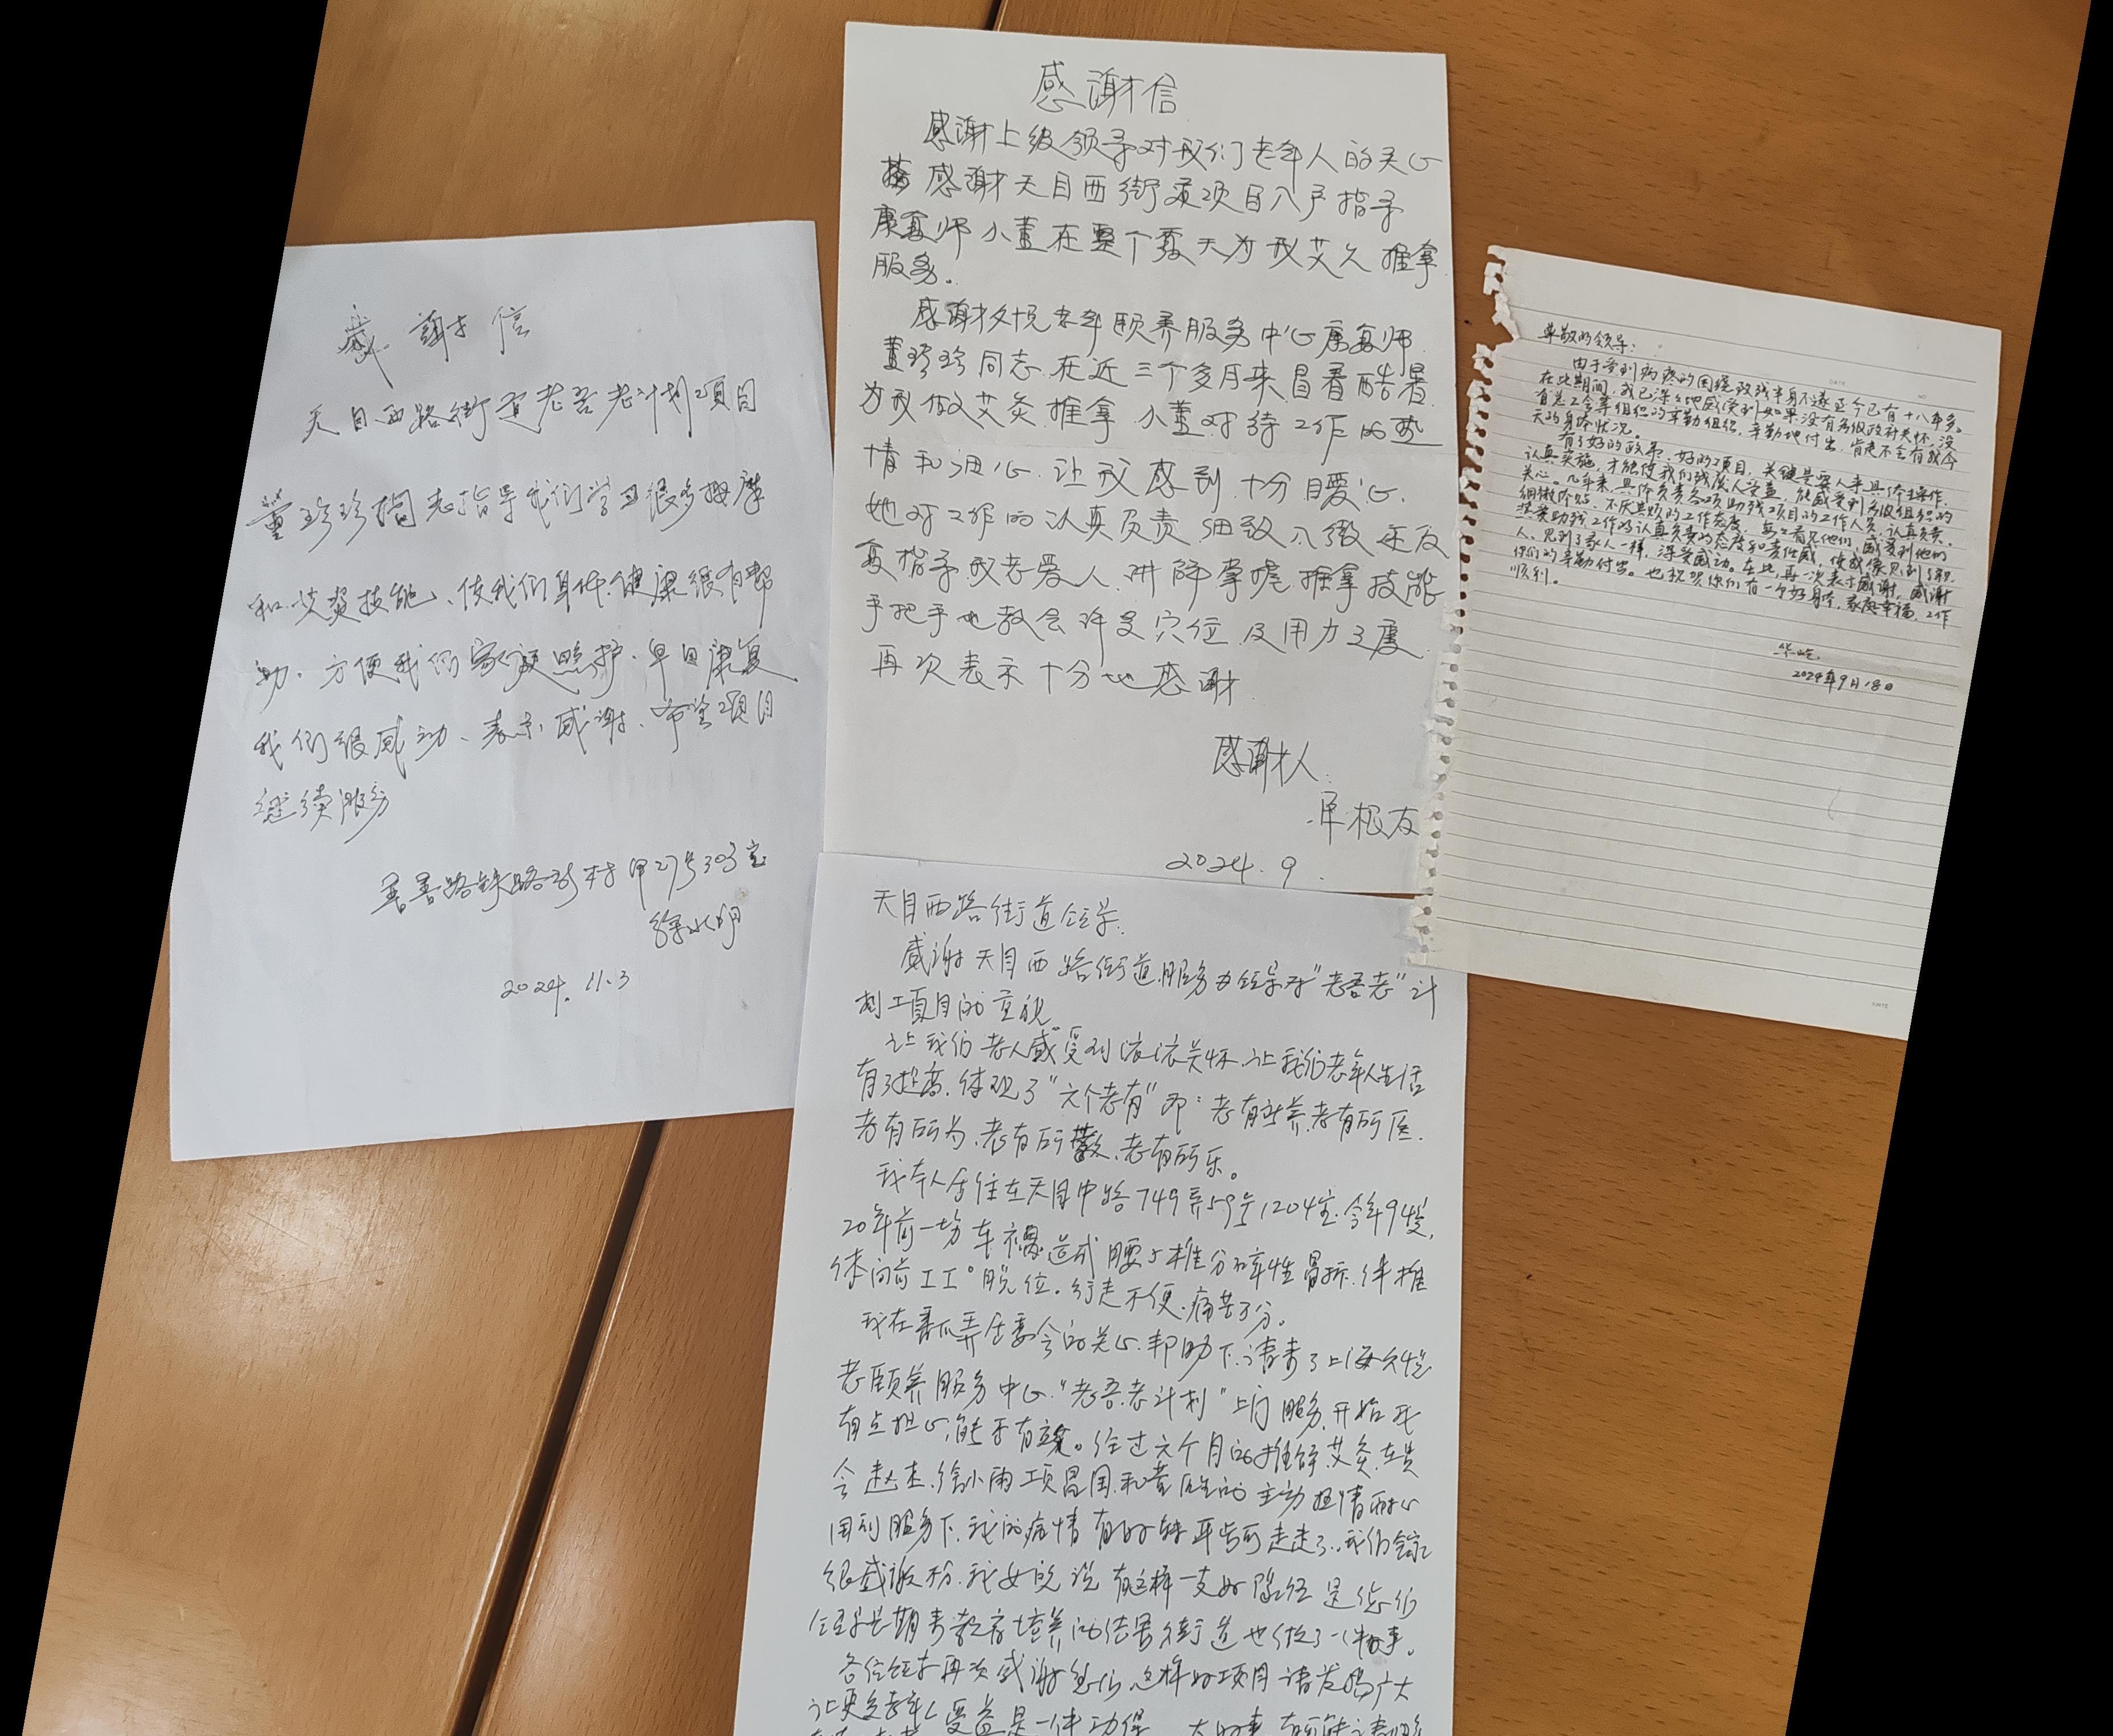 感谢信
天目西路街道老吾老计划项目
董珍珍同志指导我们学习很多按摩
和艾灸技能、使我们身体健康很有帮
助.方便我们家庭照护.早日康复
我们很感动、表示感谢、希望项目
继续服务
普善路铁路新村甲27号303室
徐水明
2024.11.3
感谢信
感谢上级领导对我们老年人的关心
感谢天目西街道项目入户指导
康复师小董在整个夏天为我艾灸推拿
服务.
感谢攸悦老年颐养服务中心康复师
董珍珍同志.在近三个多月来冒着酷暑
为我做艾灸.推拿.小董对待工作的热
情和细心.让我感到十分暖心.
她对工作的认真负责.细致入微还反
复指导我老爱人.讲解掌握推拿技能
手把手地教会许多穴位及用力之度
再次表示十分地感谢.
感谢人.
单根友
2024.9.
尊敬的领导:
由于受到病疼的困绕致残半身不遂至今已有十八年多。
在此期间,我已深深地感受到如果没有各级政府关怀,没
有总工会等组织的辛勤组织,辛勤地付出,肯定不会有我今
天的身体状况。
有了好的政策,好的项目,关键是要人来具体操作,
认真实施,才能使我们残废人受益,能感受到各级组织的
关心。几年来,具体负责各项助残项目的工作人员,认真负责,
细微体贴,不厌其烦的工作态度,每每看见他们,感受到他们
对助残工作的认真负责的态度和责任感,使我像见到了亲
人,见到了家人一样,深受感动。在此,再一次表示感谢,感谢
你们的辛勤付出。也祝贺你们有一个好身体,家庭幸福,工作
顺利。
2024年9月18日
天目西路街道领导.
感谢天目西路街道服务办领导对“老吾老”计
划项目的重视
让我们老人感受到浓浓关怀.让我们老年人生活
有了提高.体现了“六个老有”即:老有所养.老有所医.
老有所为、老有所教、老有所乐。
我本人居住在天目中路749弄59号1204室.今年94岁,
20年前一场车祸造成腰5椎分碎性骨折.伴椎
体向前II°脱位.行走不便.痛苦万分。
我在番瓜弄居委会的关心.帮助下.请来了上海久悦
老颐养服务中心.“老吾老计划”上门服务.开始我
有点担心,能否有效。经过六个月的推拿.艾灸.在吴
会赵杰.徐小雨.项昌国.和董医生的主动热情耐心
周到服务下.我的病情有所好转.平步可走走了.我们全家
很感激的.我女儿说有这样一支好队伍是您们
领导长期来教育培养的结果.街道也做了一件好事。
各位领导再次感谢您们.这样好项目请发扬广大
让更多老年人受益是一件功德